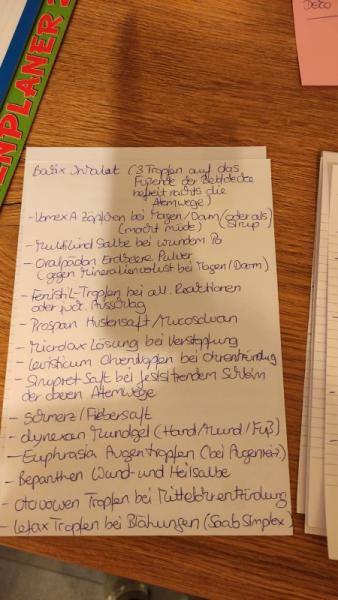 ENPLANER 2
Deko
Babix Inhalat (3 Tropfen auf das
Fußende der Bettdecke
befreit nachts die
Atemwege)
- Vomex A Zäpfchen bei Magen/Darm (oder als)
(macht müde) Sirup)
- Multilind Salbe bei wundem Po
- Oralpädon Erdbeere Pulver
(gegen Mineralienverlust bei Magen/Darm)
- Fenistil-Tropfen bei all. Reaktionen
oder juck. Ausschlag
- Prospan Hustensaft/Mucosolvan
- Microlax Lösung bei Verstopfung
- Levisticum Ohrentropfen bei Ohrentzündung
- Sinupret Saft bei festsitzendem Schleim
der oberen Atemwege
- Schmerz/Fiebersaft
- dynexan Mundgel (Hand/Mund/Fuß)
- Euphrasia Augentropfen (bei
- Bepanthen Wund- und Heilsalbe
- Otovowen Tropfen bei Mittelohrentzündung
- Lefax Tropfen bei Blähungen (Saab Simplex)